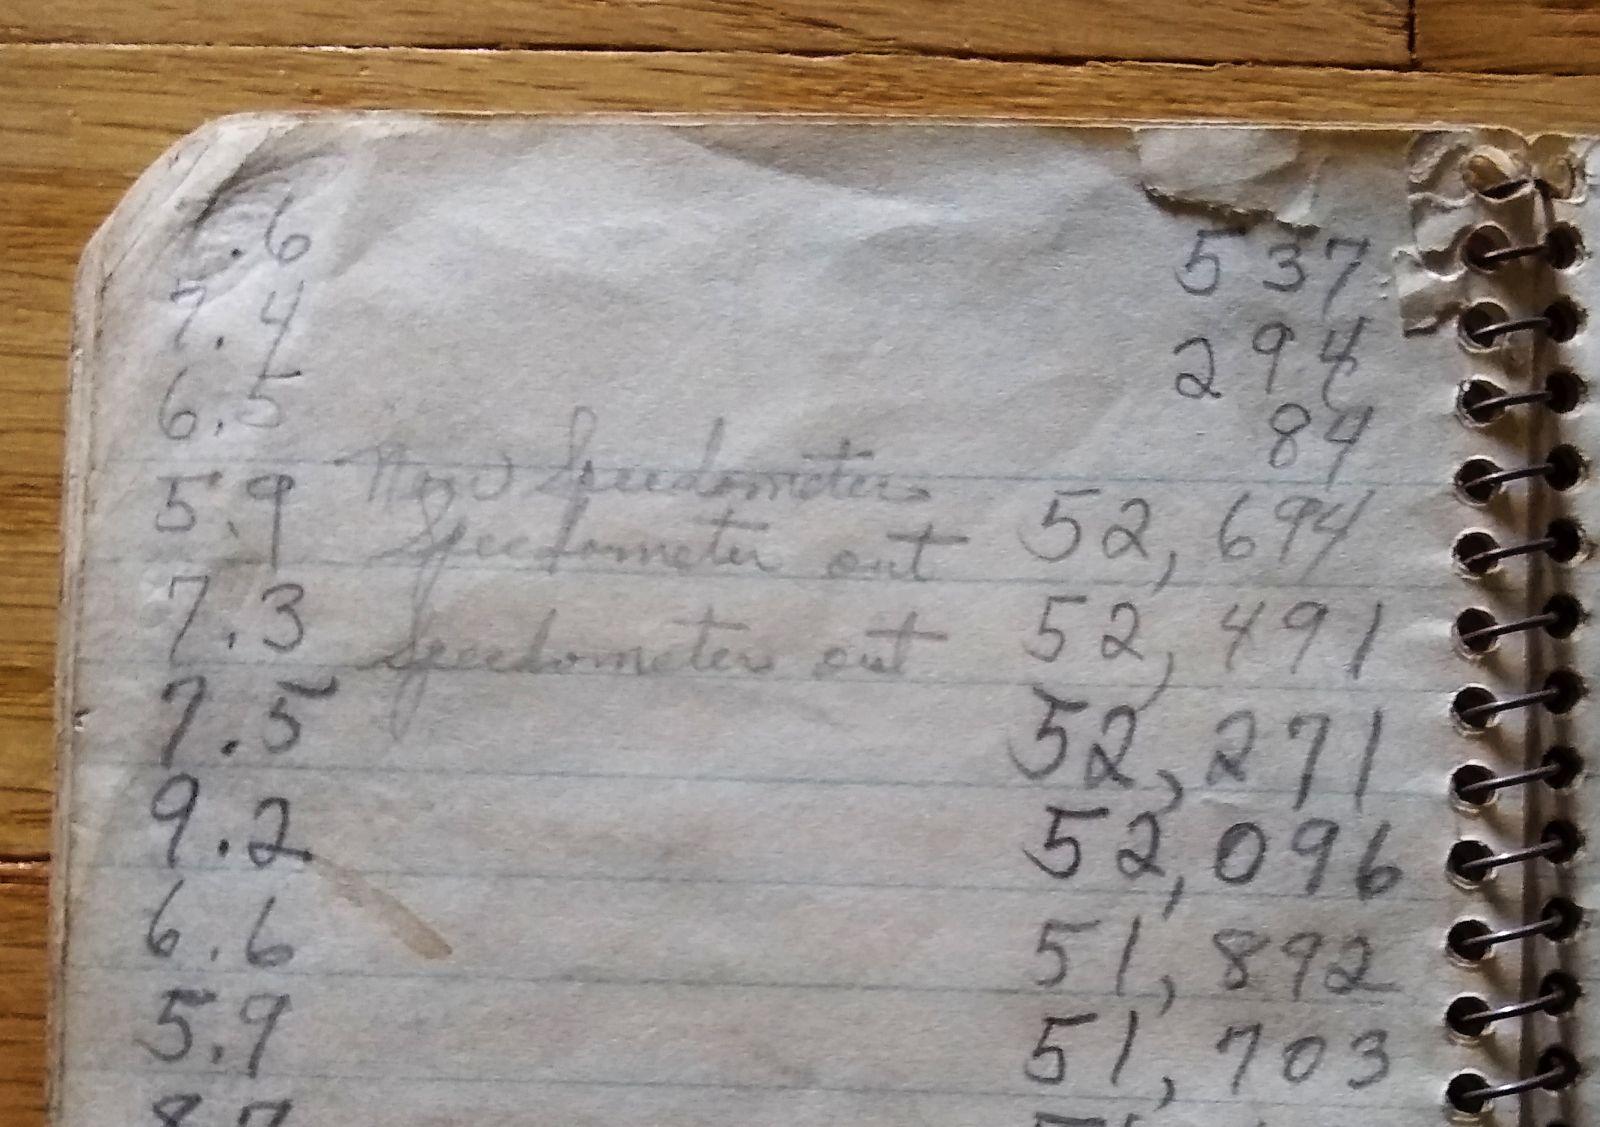 7.6 537
7.4 294
6.5 84
5.9 New Speedometer
Speedometer out 52,694
7.3 Speedometer out 52,491
7.5 52,271
9.2 52,096
6.6 51,892
5.9 51,703
8.7